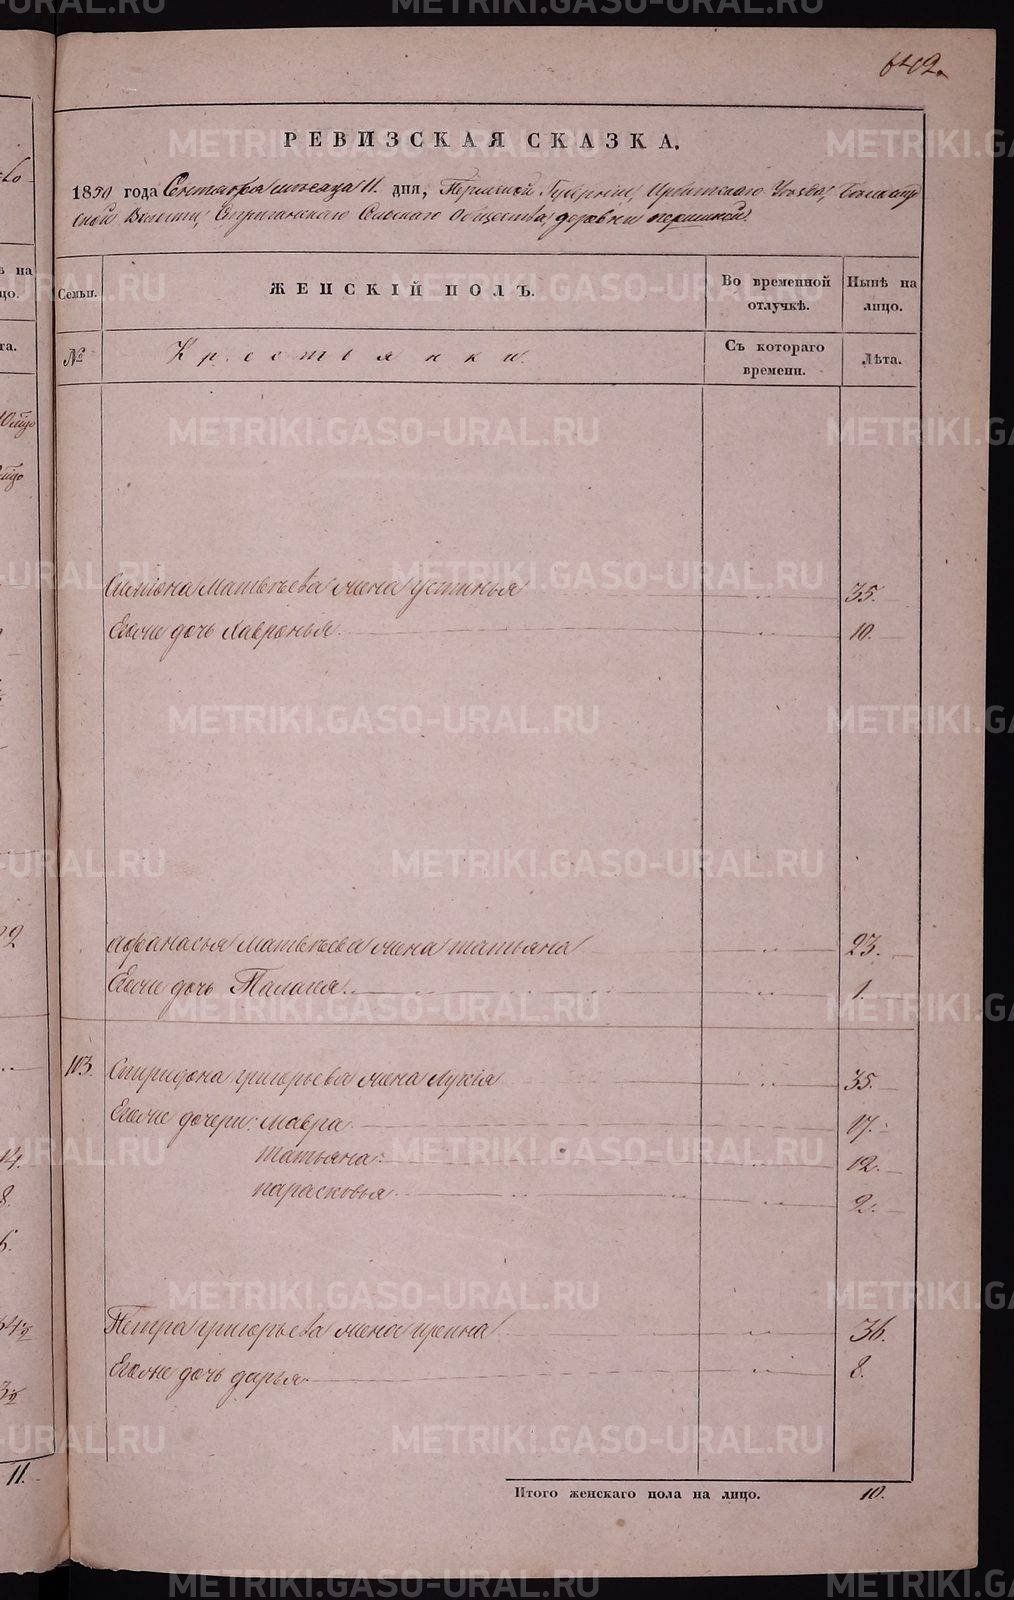 642.
РЕВИЗСКАЯ СКАЗКА.
1850 года Сентября месяца 11. дня, Пермской Губернии, Ирбитского Уезда,
ской Волости, Сельского Общества, деревни
Семьи. ЖЕНСКІЙ ПОЛЪ. Во временной отлучкѣ. Нынѣ на лицо.
№ Крестьянки. Съ котораго времени. Лѣта.
Симиона Матвѣева жена Устинья 35.
Егоже дочь Хавронья. 10.
Афанасья Матвѣева жена татьяна 23.
Егоже дочь Палагея. 1.
103. Спиридона григорьева жена Лукія 35.
Егоже дочери: мавра 17.
татьяна 12.
парасковья 2.
Петра григорьева жена ирина 36.
Егоже дочь дарья 8.
Итого женскаго пола на лицо. 10.
METRIKI.GASO-URAL.RU